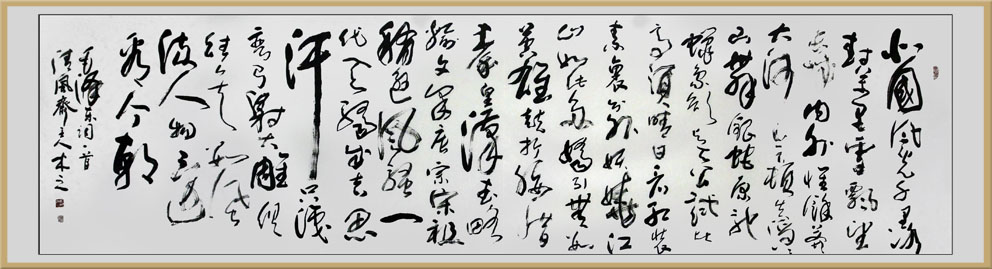 北國風光千里冰
封萬里雪飄望
長城內外惟餘莽莽
大河上下頓失滔滔
山舞銀蛇原馳
蠟象欲與天公試比
高須晴日看紅裝
素裹分外妖嬈江
山如此多嬌引無數
英雄競折腰惜
秦皇漢武略
輸文采唐宗宋祖
稍遜風騷一
代天驕成吉思
汗只識
彎弓射大雕俱
往矣數風
流人物還
看今朝
毛澤東詞一首
清風齋主人木之